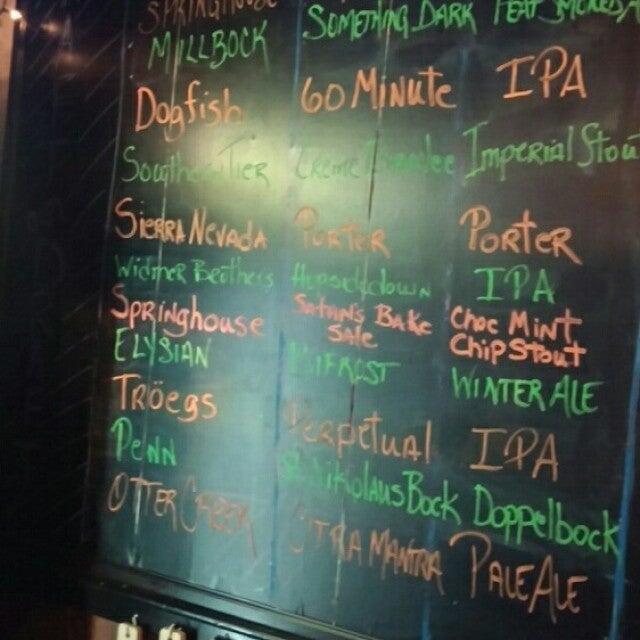 SPRINGHOUSE
MILLBOCK SOMETHING DARK
Dogfish 60 Minute IPA
Southern Tier Creme Brulee Imperial Stou
Sierra Nevada Porter Porter
Widmer Brothers Hopsidedown IPA
Springhouse Satan's Bake Sale Choc Mint Chip Stout
ELYSIAN BIFROST WINTER ALE
TRÖEGS Perpetual IPA
Penn St. Nikolaus Bock Doppelbock
OTTER CREEK CITRA MANTRA PALE ALE